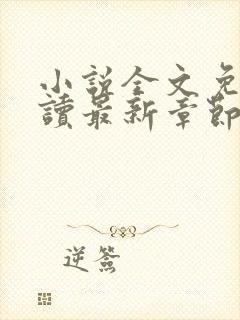 小說全文免
讀最新章節
逆簽